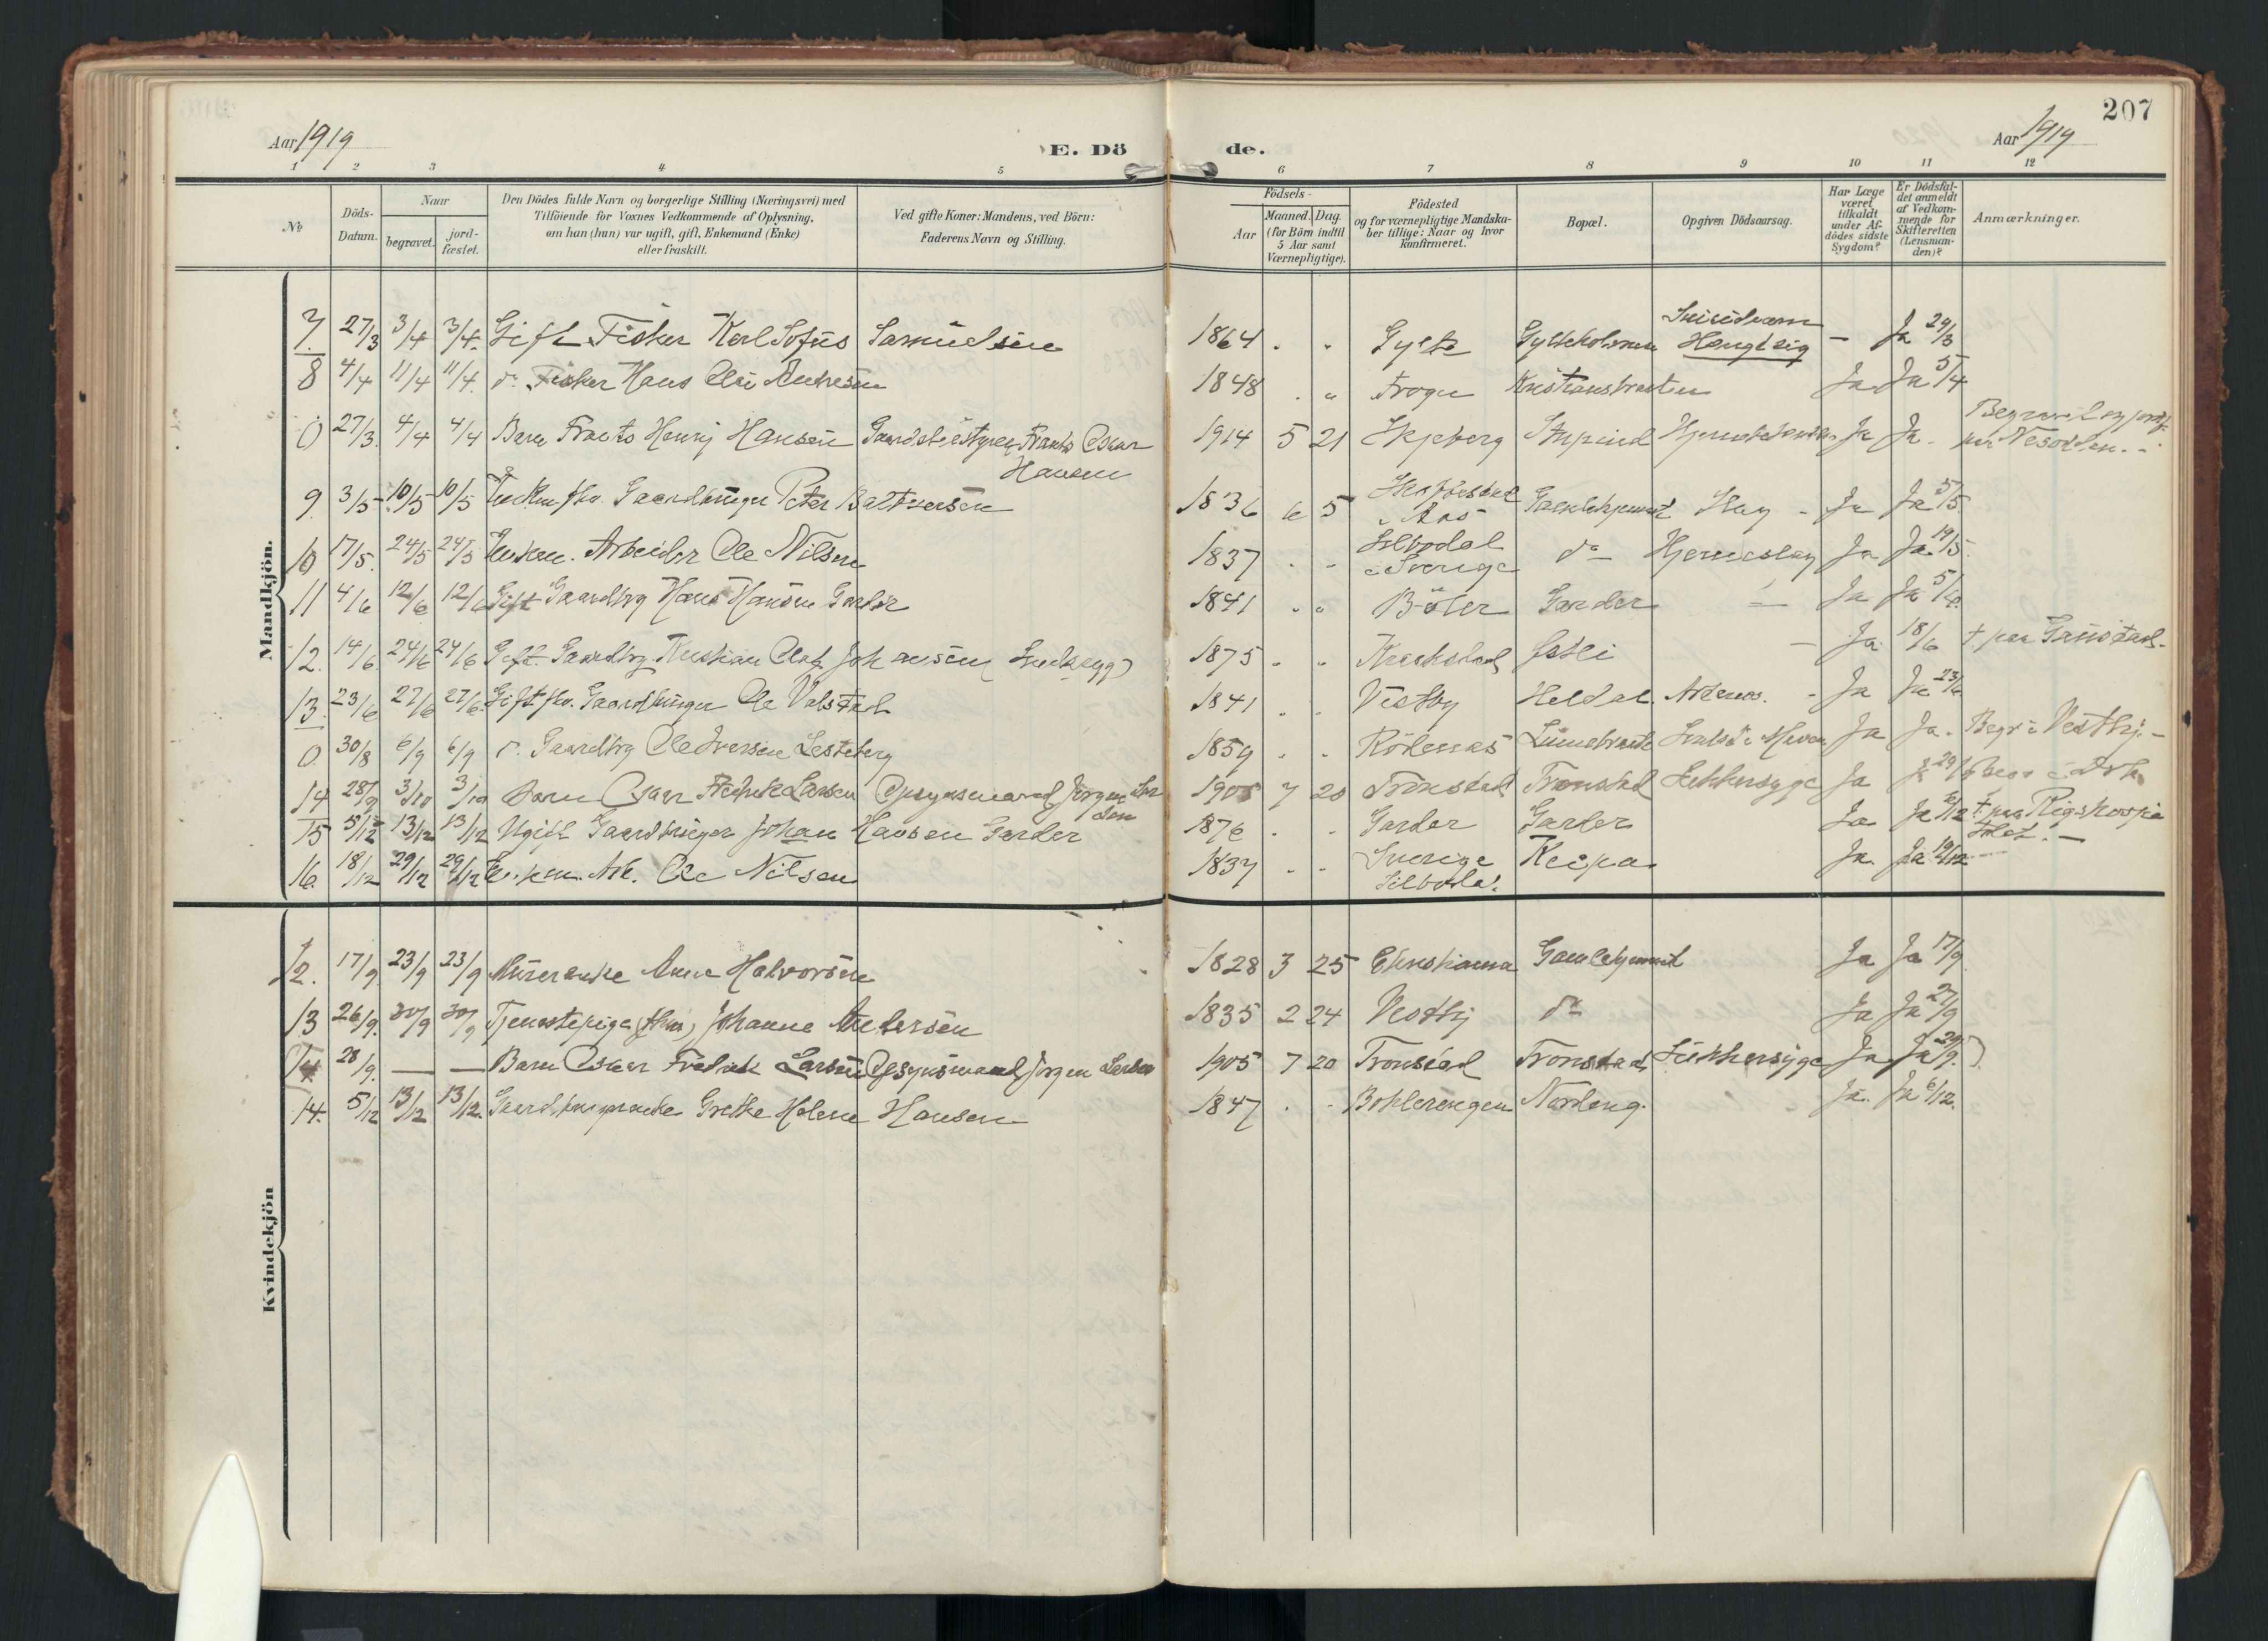 207
Aar 1919
E. Dö
de.
Aar 1919
1 2 3 4 5 6 7 8 9 10 11 12
No
Döds-Datum.
Naar
begravet.
jord-fæstet.
Den Dödes fulde Navn og borgerlige Stilling (Næringsvei) med
Tilföiende for Voxnes Vedkommende af Oplysning,
om han (hun) var ugift, gift, Enkemand (Enke)
eller fraskilt.
Ved gifte Koner: Mandens, ved Börn:
Faderens Navn og Stilling.
Födsels-
Aar
Maaned. Dag.
(for Börn indtil
5 Aar samt
Værnepligtige).
Födested
og for værnepligtige Mandska-
ber tillige: Naar og hvor
konfirmeret.
Bopæl.
Opgiven Dödsaarsag.
Har Læge
været
tilkaldt
under Af-
dödes sidste
Sygdom?
Er Dödsfal-
det anmeldt
af Vedkom-
mende for
Skifteretten
(Lensman-
den)?
Anmærkninger.
Mandkjön.
7. 27/3 3/4 3/4. Gift Fisker Karl Sofus Samuelsen 1864 Gylte Hængt sig — Ja 29/3
8 4/4 11/4 11/4. do Fisker Hans 1848 Frogn Ja Ja 5/4
0 27/3. 4/4 4/4 Barn Frants Henrij Hansen Frants Oscar 1914 5 21 Skjeberg Ja Ja. Begravet og
Hansen paa Nesodden.
9. 3/5 10/5 10/5 Gaardbruger Peter 1836 6 5 i Aas Ja Ja 5/5
10 17/5. 24/5 24/5 Enkem. Arbeider Ole Nilsen 1837 Silbodal i Sverige do Hjerneslag Ja Ja 19/5.
11 4/6 12/6 12/6 Gift Gaardbrg Hans Hansen Garder 1841 Böler Garder — Ja Ja 5/6.
12. 14/6 24/6 24/6 Gift Gaardbrg Kristian Olaf Johansen 1875 Kraakstad — Ja. 18/6 † paa Gaustad.
13. 23/6 27/6 27/6. Gift fhv. Gaardbruger Ole 1841 Vestby Heldal Ja Ja 23/6
0. 30/8 6/9 6/9 do. Gaardbrg Ole Iversen 1859 Rödenæs Ja Ja. Begr. i Vestby.-
14 28/9 3/10 3/10 Barn Oscar Fredrik Larsen Opsynsmand Jörgen Lar
sen 1905 7 20 Tronstad Tronstad Sukkersyge Ja Ja 29/9
15 5/12 13/12 13/12 Ugift Gaardbruger Johan Hansen Garder 1876 Garder Garder Ja Ja 6/12 † paa Rigshospi
talet.-
16. 18/12 29/12 29/12 Enkem. Arb. Ole Nilsen 1837 Sverige Silbodal. Ja. Ja 19/12
Kvindekjön
12. 17/9 23/9 23/9 Murerenke Anne Halvorsen 1828 3 25 Kristiania Ja Ja 17/9
13 26/9. 30/9 30/9 Tjenestepige (fhv.) Johanne Andersen 1835 2 24 Vestby do Ja Ja 27/9
(14 28/9. — — Barn Oskar Fredrik Larsen Opsynsmand Jörgen Larsen 1905 7 20 Tronstad Tronstad Sukkersyge Ja Ja 29/9.)
14. 5/12 13/12 13/12. Gaardbrugerenke Grethe Helene Hansen 1847 Bohlerengen Nordeng. Ja. Ja 6/12.